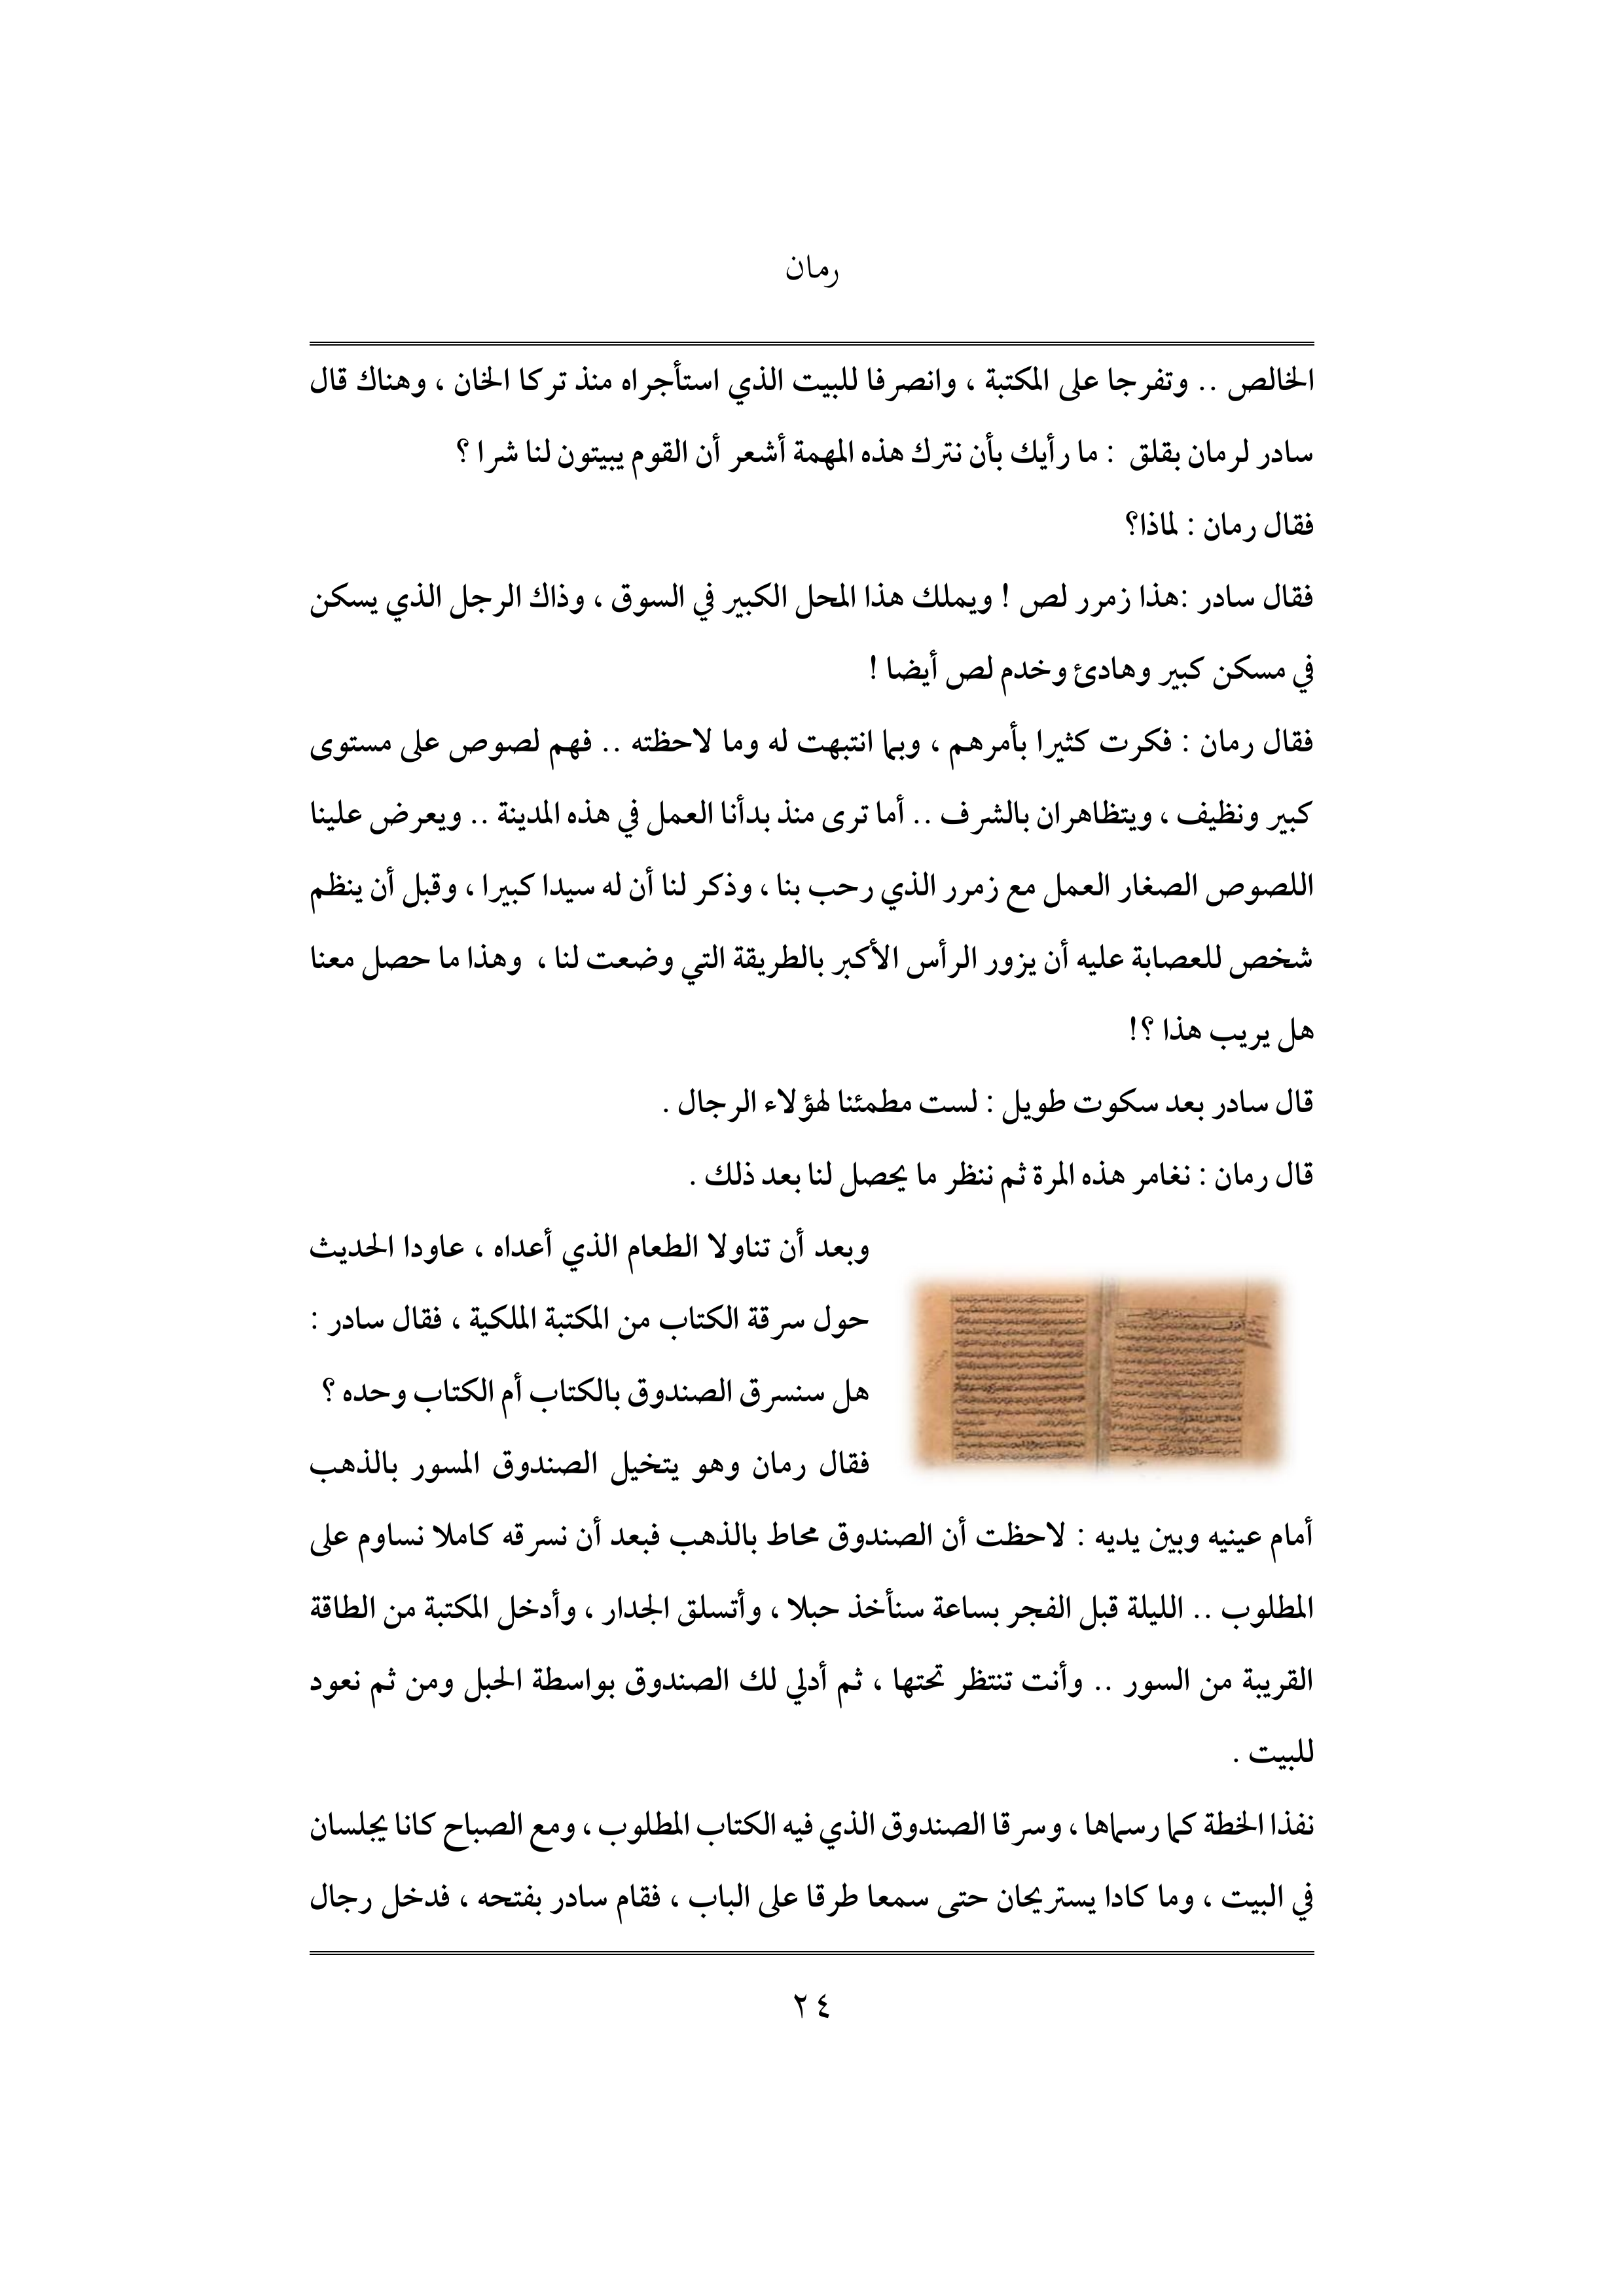 رمان
الخالص .. وتفرجا على المكتبة ، وانصرفا للبيت الذي استأجراه منذ تركا الخان ، وهناك قال
سادر لرمان بقلق : ما رأيك بأن نترك هذه المهمة أشعر أن القوم يبيتون لنا شرا ؟
فقال رمان : لماذا؟
فقال سادر :هذا زمرر لص ! ويملك هذا المحل الكبير في السوق ، وذاك الرجل الذي يسكن
في مسكن كبير وهادئ وخدم لص أيضا !
فقال رمان : فكرت كثيرا بأمرهم ، وبما انتبهت له وما لاحظته .. فهم لصوص على مستوى
كبير ونظيف ، ويتظاهران بالشرف .. أما ترى منذ بدأنا العمل في هذه المدينة .. ويعرض علينا
اللصوص الصغار العمل مع زمرر الذي رحب بنا ، وذكر لنا أن له سيدا كبيرا ، وقبل أن ينظم
شخص للعصابة عليه أن يزور الرأس الأكبر بالطريقة التي وضعت لنا ، وهذا ما حصل معنا
هل يريب هذا ؟!
قال سادر بعد سكوت طويل : لست مطمئنا لهؤلاء الرجال .
قال رمان : نغامر هذه المرة ثم ننظر ما يحصل لنا بعد ذلك .
وبعد أن تناولا الطعام الذي أعداه ، عاودا الحديث
حول سرقة الكتاب من المكتبة الملكية ، فقال سادر :
هل سنسرق الصندوق بالكتاب أم الكتاب وحده ؟
فقال رمان وهو يتخيل الصندوق المسور بالذهب
أمام عينيه وبين يديه : لاحظت أن الصندوق محاط بالذهب فبعد أن نسرقه كاملا نساوم على
المطلوب .. الليلة قبل الفجر بساعة سنأخذ حبلا ، وأتسلق الجدار ، وأدخل المكتبة من الطاقة
القريبة من السور .. وأنت تنتظر تحتها ، ثم أدلي لك الصندوق بواسطة الحبل ومن ثم نعود
للبيت .
نفذا الخطة كما رسماها ، وسرقا الصندوق الذي فيه الكتاب المطلوب ، ومع الصباح كانا يجلسان
في البيت ، وما كادا يستريحان حتى سمعا طرقا على الباب ، فقام سادر بفتحه ، فدخل رجال
٢٤